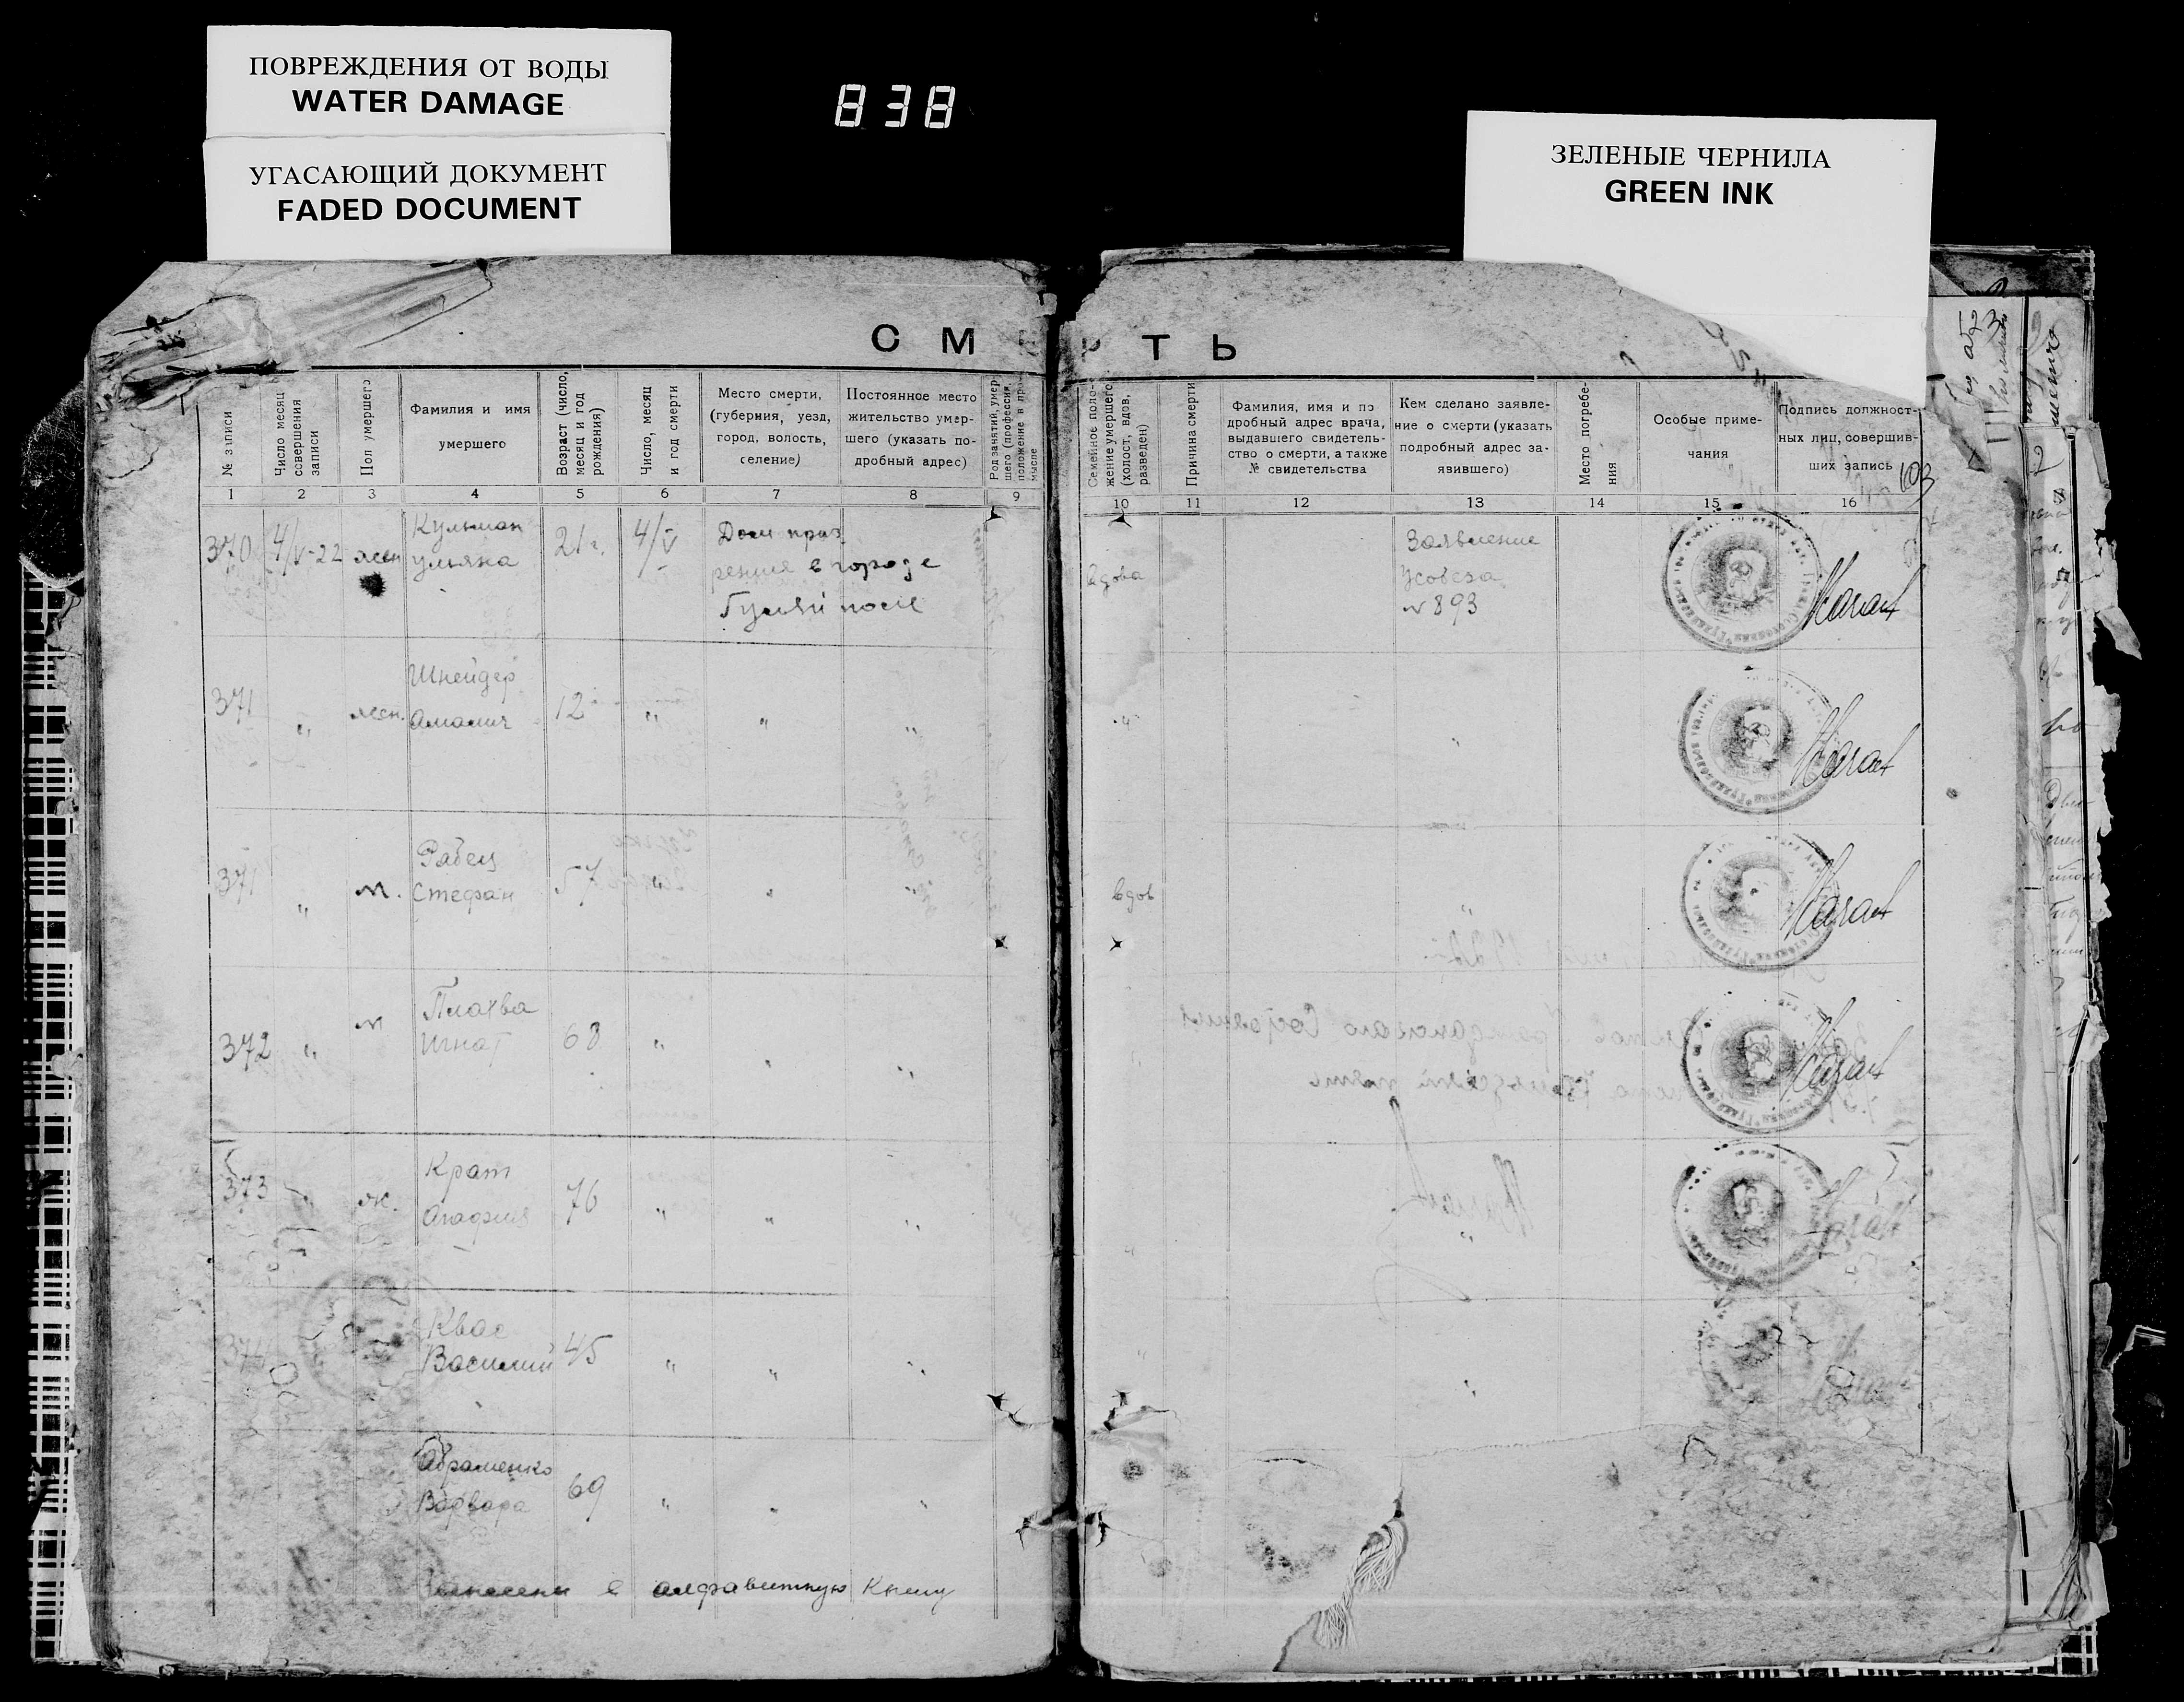 ПОВРЕЖДЕНИЯ ОТ ВОДЫ
WATER DAMAGE
УГАСАЮЩИЙ ДОКУМЕНТ
FADED DOCUMENT
838
ЗЕЛЕНЫЕ ЧЕРНИЛА
GREEN INK
СМЕРТЬ
№ записи
Число месяц
совершения
записи
Пол умершего
Фамилия и имя
умершего
Возраст (число,
месяц и год
рождения)
Число, месяц
и год смерти
Место смерти,
(губерния, уезд,
город, волость,
селение)
Постоянное место
жительство умер-
шего (указать по-
дробный адрес)
Род занятий, умер-
шего (профессия,
положение в про-
мысле
Семейное поло-
жение умершего
(холост, вдов,
разведен)
Причина смерти
Фамилия, имя и по
дробный адрес врача,
выдавшего свидетель-
ство о смерти, а также
№ свидетельства
Кем сделано заявле-
ние о смерти (указать
подробный адрес за-
явившего)
Место погребе-
ния
Особые приме-
чания
Подпись должност-
ных лиц, совершив-
ших запись
103
1 2 3 4 5 6 7 8 9 10 11 12 13 14 15 16
370 4/V-22 жен Кульман
Ульяна 21 г. 4/V
Дом приз
рения в городе
Гуляй поле
вдова
Заявление
Усобеза
№ 893
371 " жен. Шнейдер
12 " " "
" "
371 " м. Рабец
Стефан 57 " " "
вдов "
372 " м Плахва
Игнат 68 " " "
373 ж. Крат
Агафия 76 " " "
" "
374 Квас
Василий 45 " " "
" "
Абраменко
Варвара 69 " " "
в алфавитную книгу